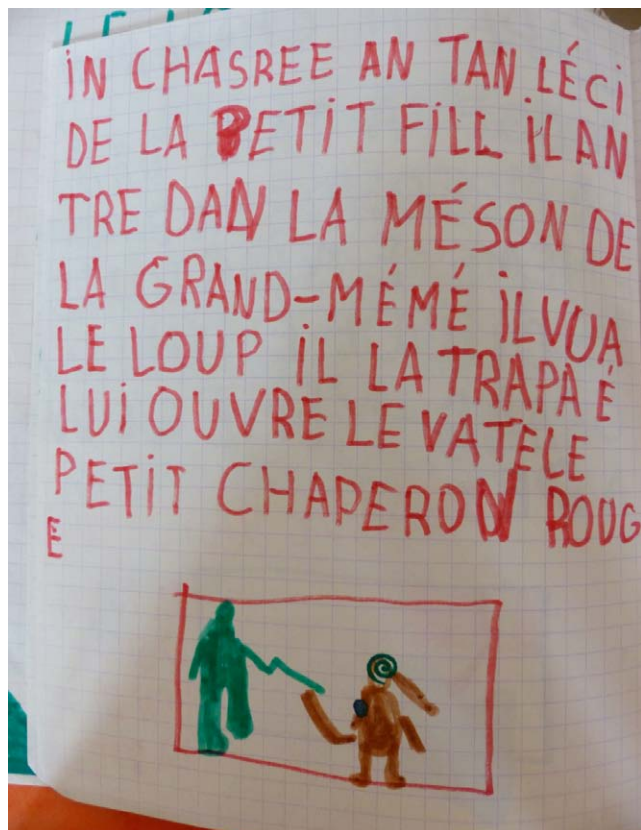 iN CHASREE AN TAN LÉCi
DE LA PETiT FiLL iL AN
TRE DAN LA MÉSON DE
LA GRAND-MÉMÉ iL VUA
LE LOUP iL LA TRAPA É
LUi OUVRE LE VATELE
PETiT CHAPERON ROUG
E